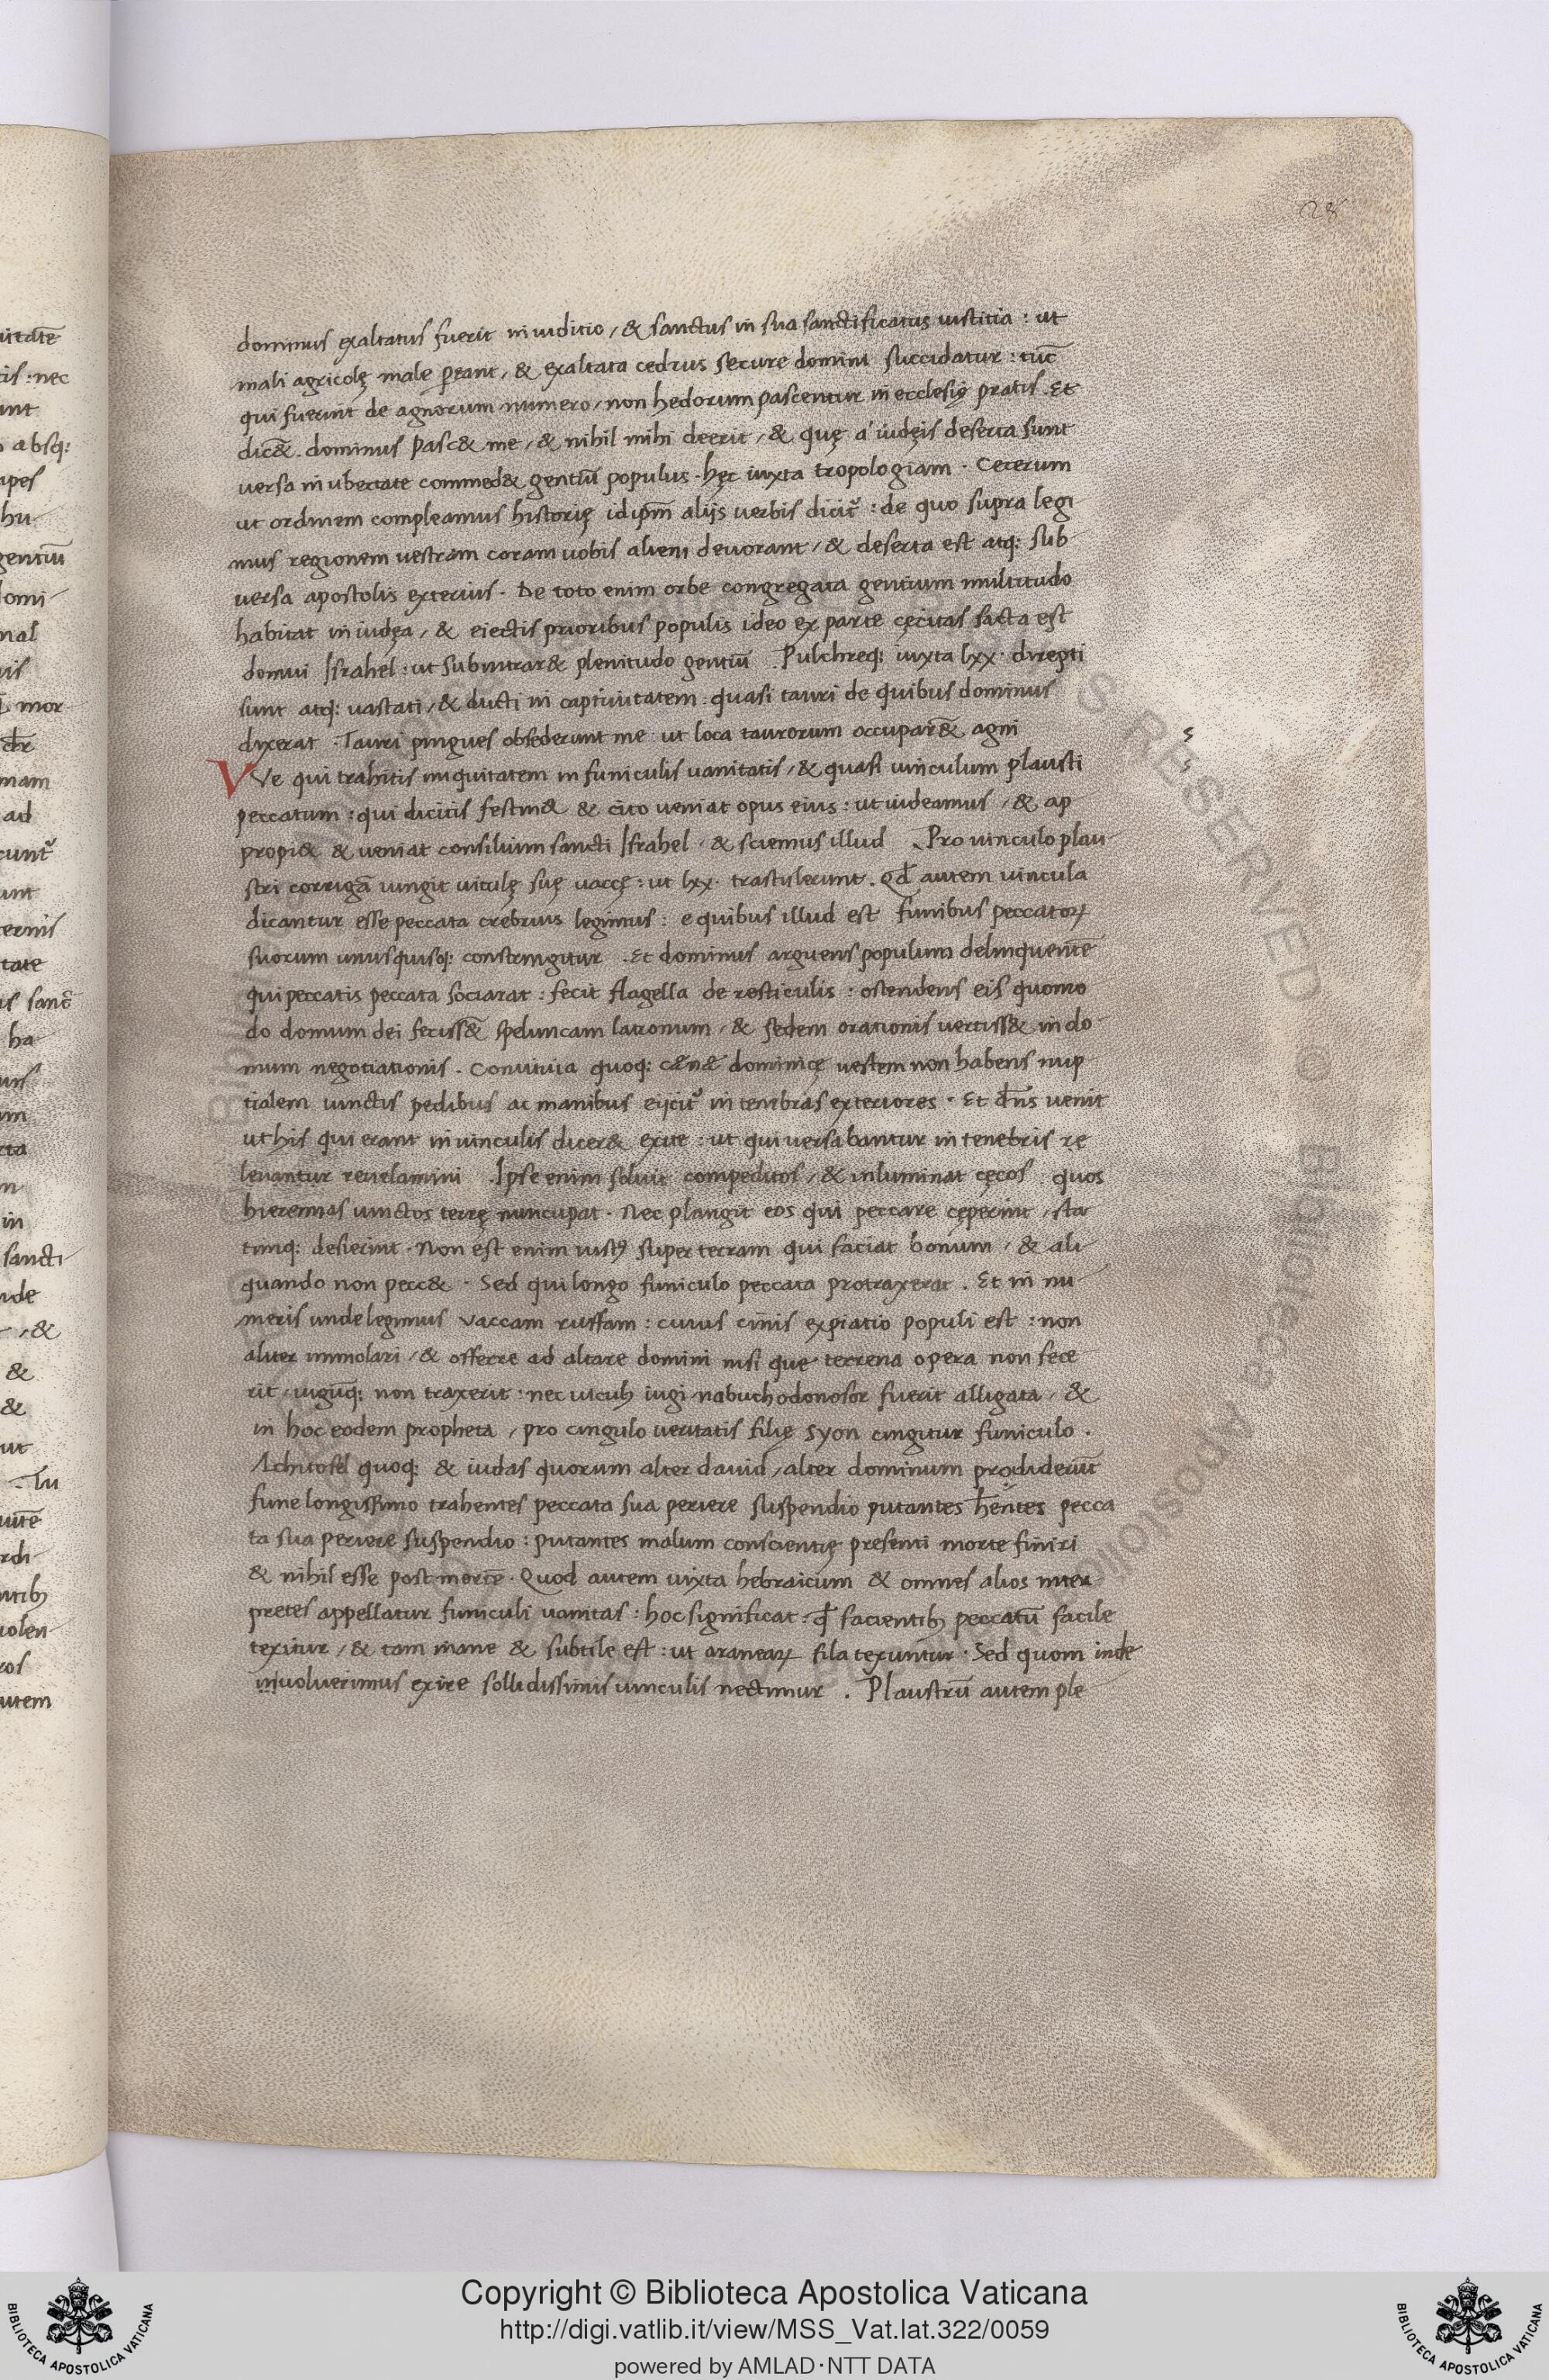 28
dominus exaltatus fuerit in iuditio / & sanctus in sua sanctificatus iustitia : ut
mali agricolę male ꝑeant, & exaltata cedrus secure domini succidatur : tūc
qui fuerint de agnorum numero / non hedorum pascentur in ecclesię pratis . Et
dic&̄ . dominus pasc& me / & nihil mihi deerit / & quę a' iudęis deserta sunt
uersa in ubertate commed& gentiū populus . hęc iuxta tropologiam . Ceterum
ut ordinem compleamus historię idip̄m alijs uerbis dicit᷑ : de quo supra legi
mus regionem uestram coram uobis alieni deuorant / & deserta est atq: sub
uersa apostolis exterius . De toto enim orbe congregata gentium multitudo
habitat in iudęa / & eiectis prioribus populis ideo ex parte cęcitas facta est
domui Israhel : ut subintrar& plenitudo gentiū . Pulchreq: iuxta lxx . direpti
sunt atq: uastati / & ducti in captiuitatem : quasi tauri de quibus dominus
dixerat . Tauri pingues obsederunt me ut loca taurorum occupar&̄ agni
VVe qui trahitis iniquitatem in funiculis uanitatis / & quasi uinculum plausti
peccatum : qui dicitis festin& & cito ueniat opus eius : ut uideamus / & ap
propi& & ueniat consilium sancti Israhel / & sciemus illud . Pro uinculo plau
stri corrigā iungit uitulę suę uaccę : ut lxx . trastulerunt . qđ autem uincula
dicantur esse peccata crebrius legimus : e quibus illud est funibus peccatoꝝ
suorum unusquisq: constringitur . Et dominus arguens populum delinquentē
qui peccatis peccata sociarat : fecit flagella de resticulis : ostendens eis quomo
do domum dei feciss&̄ speluncam latronum / & sedem orationis uertiss& in do
mum negotiationis . Conuiuia quoq: cænæ dominicę uestem non habens nup
tialem uinctis pedibus ac manibus eijcit᷑ in tenebras exteriores . Et dn̄s uenit
ut his qui erant in uinculis dicer& exite : ut qui uersabantur in tenebris re
leuantur reuelamini . Ipse enim soluit compeditos / & inluminat cęcos : quos
hieremias uinctos terrę nuncupat . Nec plangit eos qui peccare cęperint / sta
timq: desierint . Non est enim iustꝰ super terram qui faciat bonum / & ali
quando non pecc& . Sed qui longo funiculo peccata protraxerat . Et in nu
meris unde legimus vaccam ruffam : cuius cinis expiatio populi est : non
aliter immolari / & offerre ad altare domini nisi que terrena opera non fece
rit / iugūq: non traxerit : nec uicub iugi nabuchodonosor fuerit alligata / &
in hoc eodem propheta / pro cingulo ueritatis filię syon cingitur funiculo .
Achitofel quoq: & iudas quorum alter dauid / alter dominum prodiderūt
fune longissimo trahentes peccata sua periere suspendio putantes hēntes pecca
ta sua periere suspendio : putantes malum conscientię presenti morte finiri
& nihil esse post mortē . Quod autem iuxta hebraicum & omnes alios inter
pretes appellatur funiculi uanitas : hoc significat : ꝙ facientib; peccatū facile
texitur / & tam inane & subtile est : ut araneaꝝ fila texuntur . Sed quom inde
inuoluerimus exire sollidissimis uinculis nectimur . Plaustrū autem ple
Copyright © Biblioteca Apostolica Vaticana
http://digi.vatlib.it/view/MSS_Vat.lat.322/0059
powered by AMLAD·NTT DATA
BIBLIOTECA APOSTOLICA VATICANA
BIBLIOTECA APOSTOLICA VATICANA